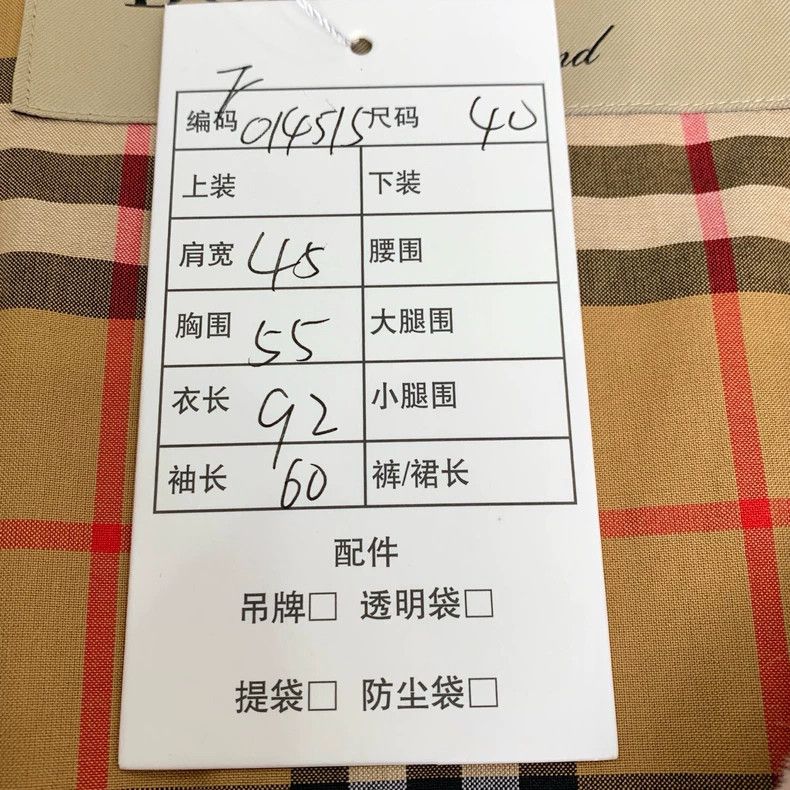 nd
编码 014515 尺码 40
上装 下装
肩宽 45 腰围
胸围 55 大腿围
衣长 92 小腿围
袖长 60 裤/裙长
配件
吊牌□ 透明袋□
提袋□ 防尘袋□